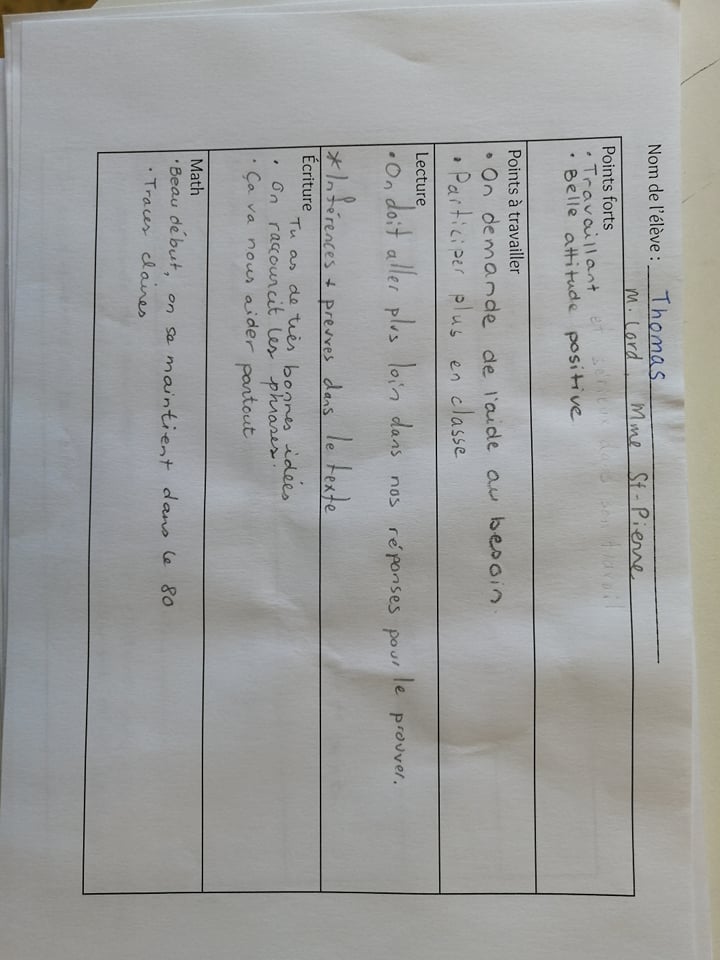 Nom de l'élève : Thomas
M. Lord, Mme St-Pierre
Points forts
• Travaillant et sérieux dans son travail
• Belle attitude positive
Points à travailler
• On demande de l'aide au besoin.
• Participer plus en classe
Lecture
• On doit aller plus loin dans nos réponses pour le prouver.
* Inférences + preuves dans le texte
Écriture
Tu as de très bonnes idées
• On raccourcit les phrases.
• Ça va nous aider partout
Math
• Beau début, on se maintient dans le 80
• Traces claires